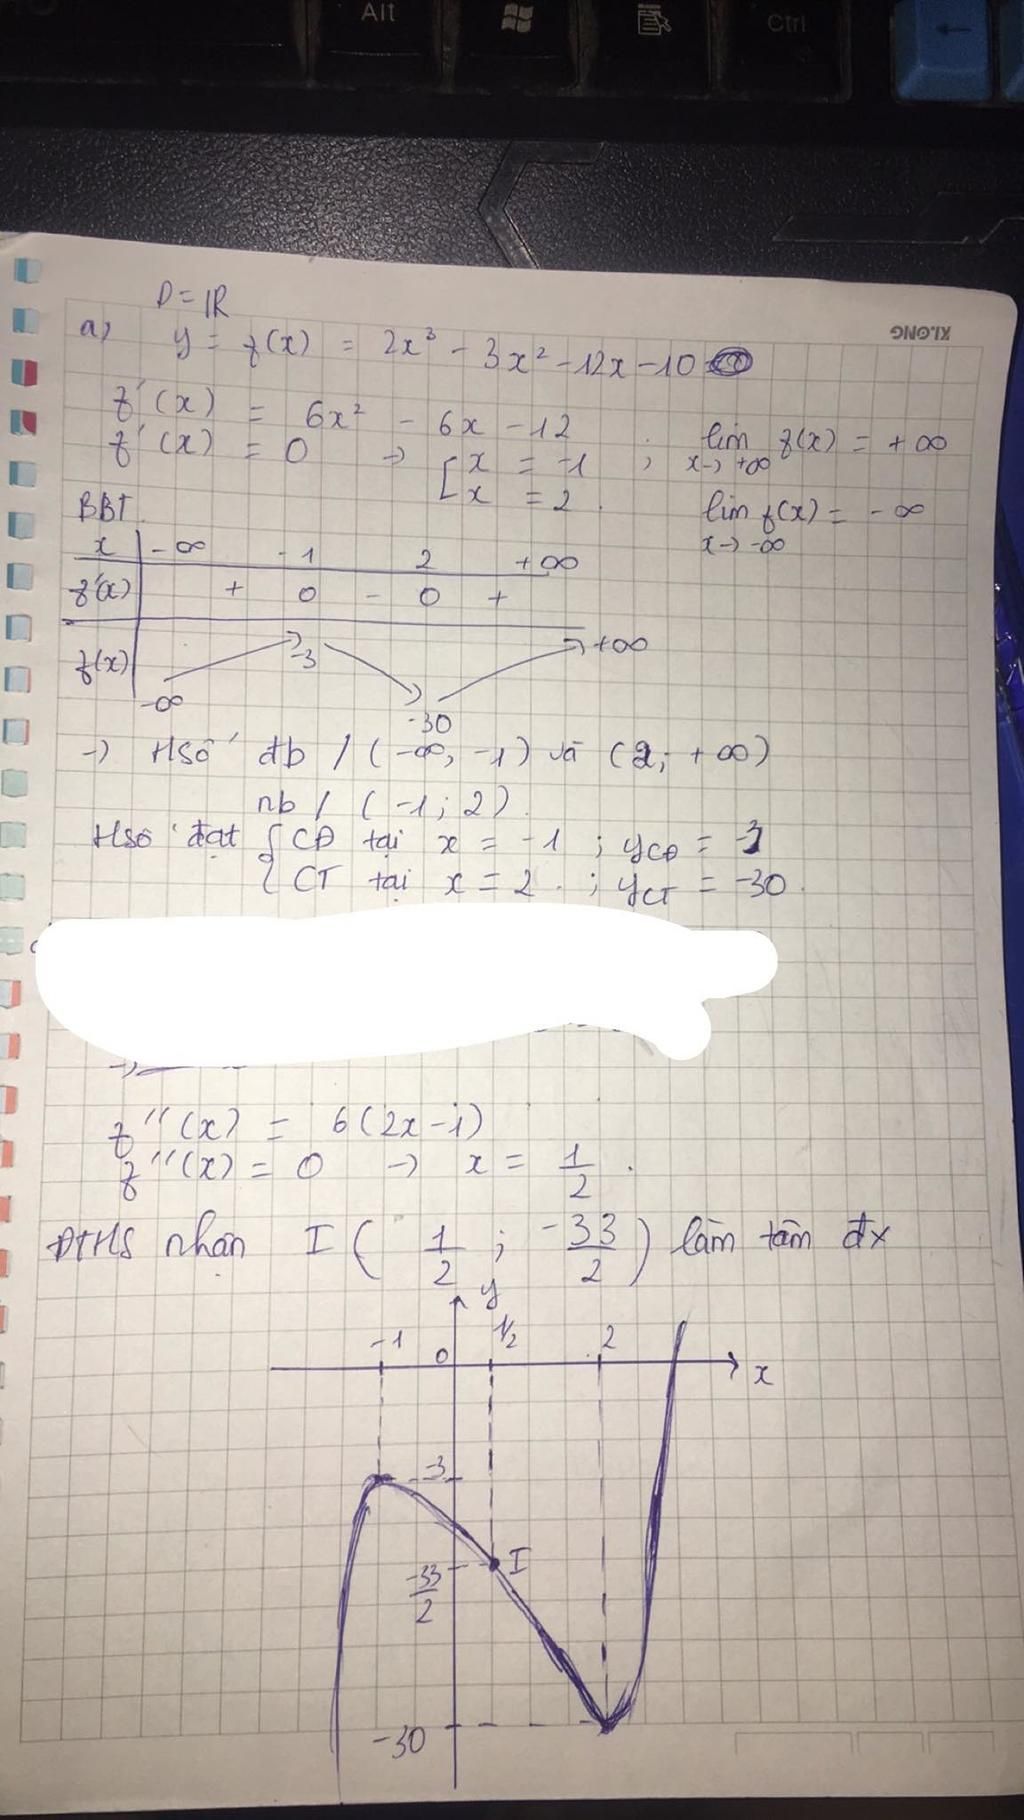 Alt
Ctrl
KLONG
D = ℝ
a) y = f(x) = 2x³ - 3x² - 12x - 10
f'(x) = 6x² - 6x - 12
f'(x) = 0 → [ x = -1 ; lim f(x) = +∞
x = 2. x → +∞
BBT. lim f(x) = -∞
x → -∞
x | -∞ -1 2 +∞
f'(x) | + 0 - 0 +
f(x) | -∞ -3 -30 +∞
→ Hsố đb / (-∞, -1) và (2; +∞)
nb / (-1; 2).
Hsố đạt { CĐ tại x = -1 ; yCĐ = -3
CT tại x = 2. ; yCT = -30.
f''(x) = 6(2x-1)
f''(x) = 0 → x = 1/2.
ĐTHS nhận I ( 1/2 ; -33/2 ) làm tâm đx
y
-1 0 1/2 2 x
-3
-33/2 I
-30